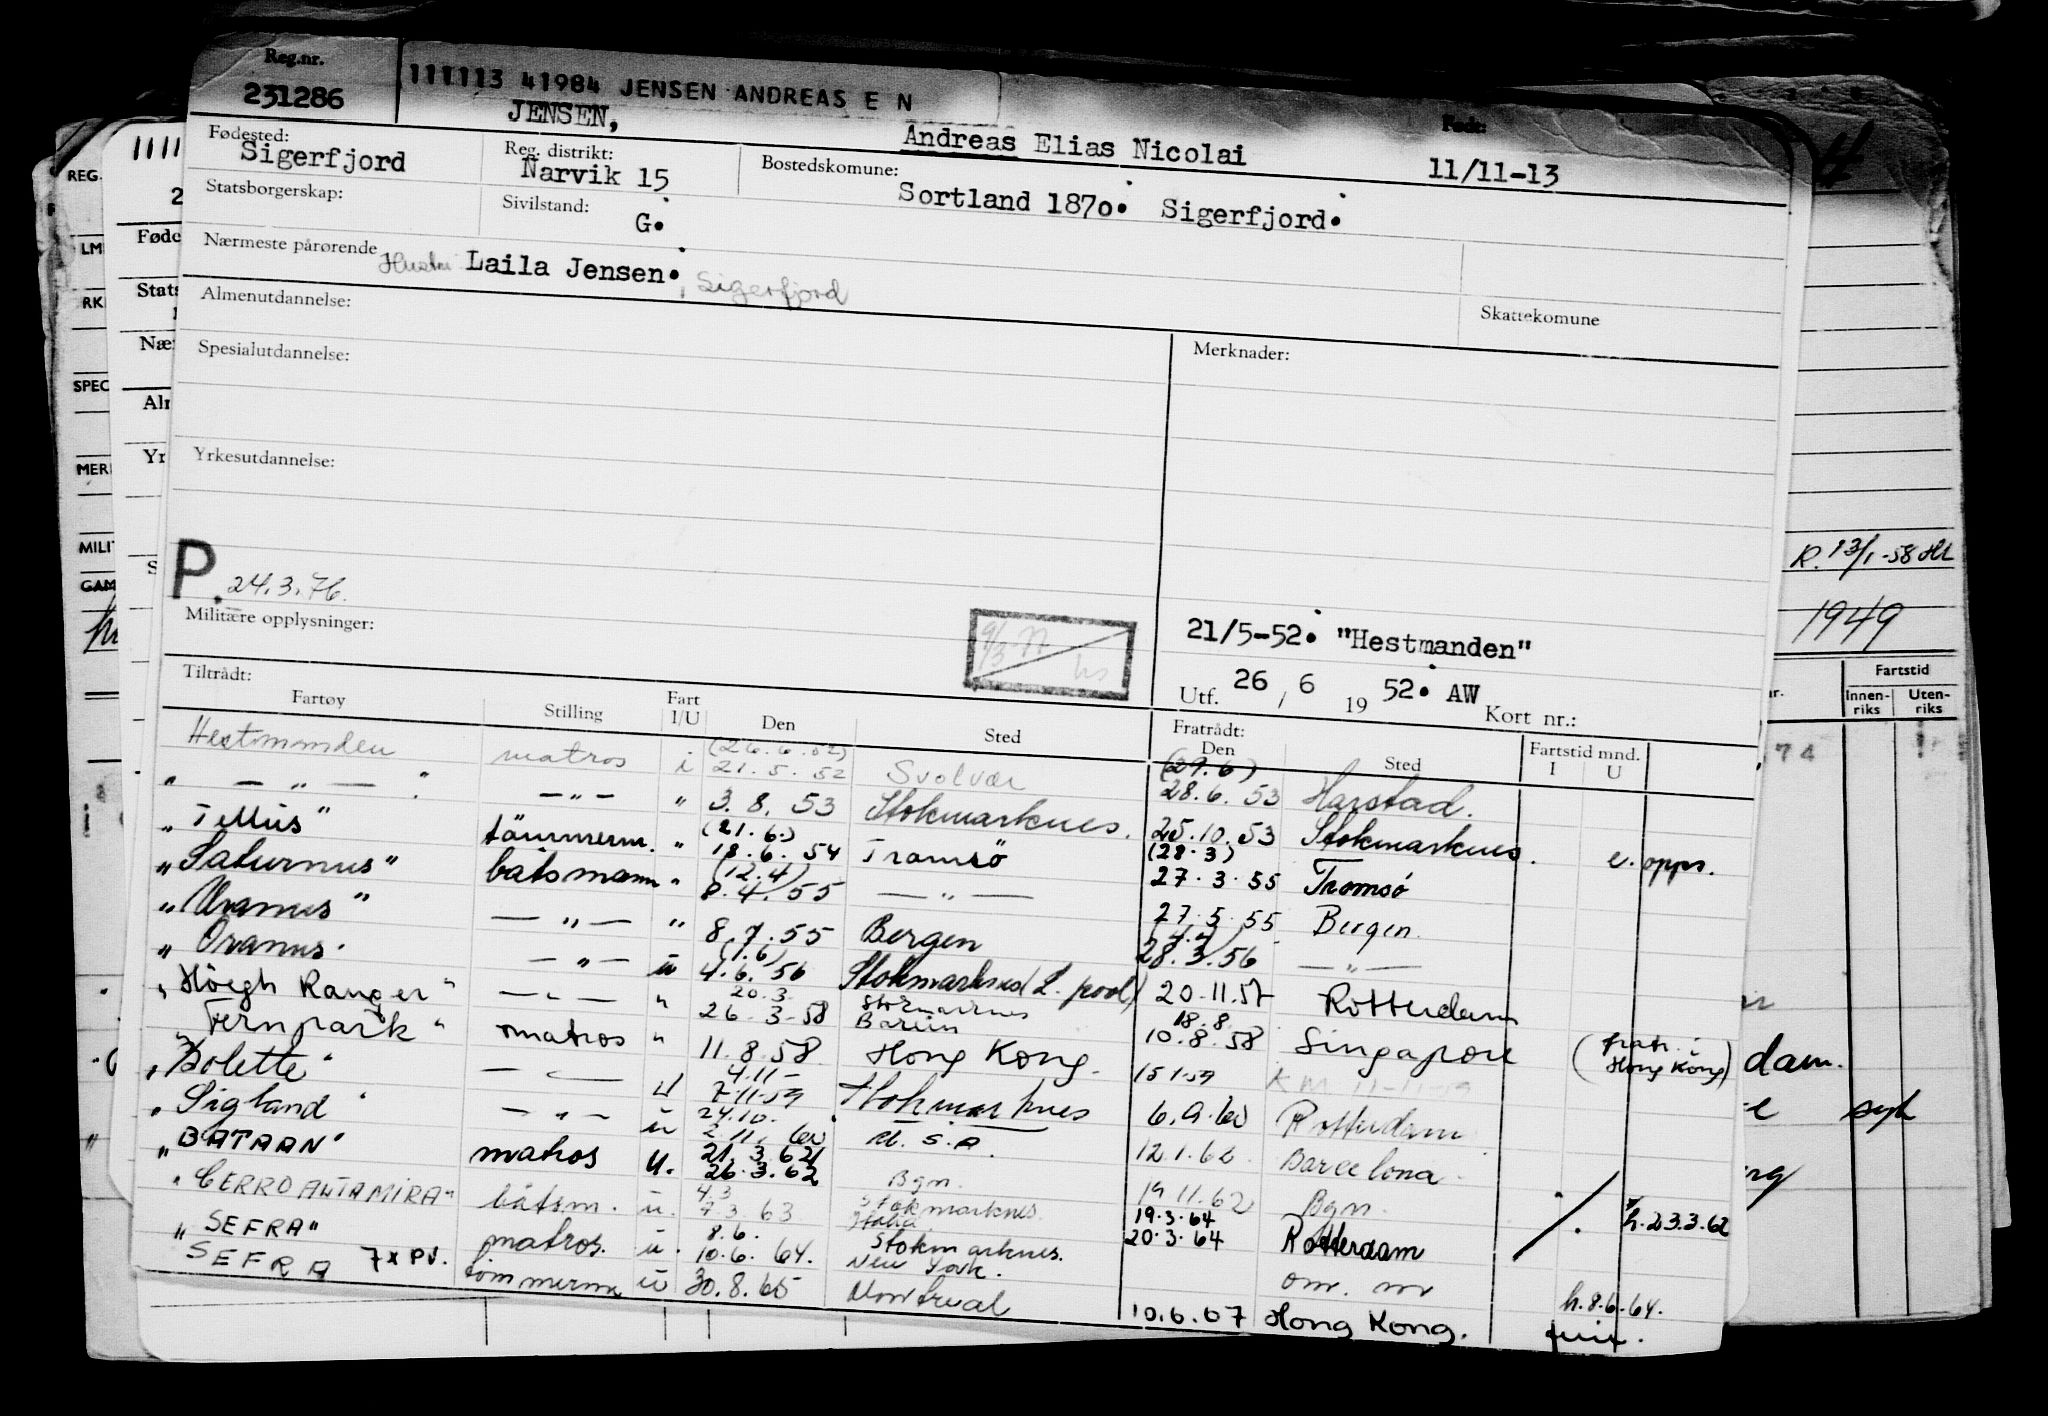 Reg.nr.
231286
111113 41984 JENSEN ANDREAS E N
JENSEN, Andreas Elias Nicolai
Født:
11/11-13
Fødested:
Sigerfjord
Reg. distrikt:
Narvik 15
Bostedskomune:
Sortland 1870. Sigerfjord.
Statsborgerskap:
Sivilstand:
G.
Nærmeste pårørende
Hustru Laila Jensen., Sigerfjord
Almenutdannelse:
Skattekomune
Spesialutdannelse:
Merknader:
Yrkesutdannelse:
P. 24.3.76.
Militære opplysninger:
21/5-52. "Hestmanden"
Utf. 26 / 6 19 52. AW
Kort nr.:
Tiltrådt:
Fratrådt:
Fartøy Stilling Fart I/U Den Sted Den Sted Fartstid mnd. I U
Hestmanden matros i (26.6.52) 21.5.52 Svolvær (29.6) 28.6.53 Harstad.
" — " — " — " — " 3.8.53 Stokmarknes. 25.10.53 Stokmarknes. e. opps.
"Tellus" tömmerm. " (21.6.) 18.6.54 Tromsö (28.3) 27.3.55 Tromsö
"Saturnus" båtsmann " (12.4) 8.4.55 — " — 27.5.55 Bergen.
"Uranus" — " — " 8.7.55 Bergen 28.3.56 — " —
"Oranus" — " — u (1.6) 4.6.56 Stokmarknes (L. pool) 20.11.57 Rotterdam
"Höegh Ranger" — " — " 20.3. 26.3-58 18.8. 10.8.58 Singapore (fratr. Hong Kong)
"Fernpark" matros " 11.8.58 Hong Kong. 15.1.59
"Bolette" — " — u 4.11- 7-11-59 Stokmarknes 6.9.60 Rotterdam
"Sigland" — " — u 24.10. 2.11.60 U.S.A. 12.1.62 Barcelona
"BATAAN" matros u. 21.3.62 26.3.62 Bgn. 19.11.62 Bgn. h.23.3.62
"CERRO ALTAMIRA" båtsm. u. 4.3 7.3.63 Stokmarknes. Italia 19.3.64 20.3.64 Rotterdam
"SEFRA" matros. u. 8.6. 10.6.64. Stokmarknes. New York. om. m h.8.6.64.
SEFRA 7x PV. tömmerm u 30.8.65 Montreal 10.6.67 Hong Kong.
1111
REG.
2
LM
Føde
RK
Stats
Nær
SPEC
Aln
MERI
Yr
MILIT
S
GAM
R. 13/1-58 HL
1949
Fartstid
Innen-riks
Uten-riks
74
dam.